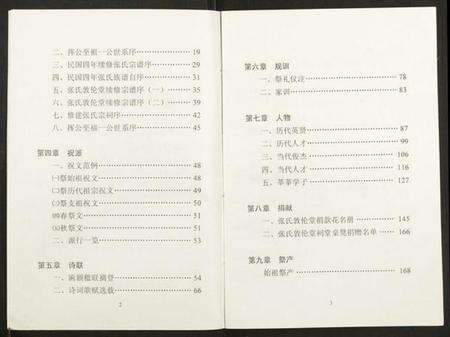 二、挥公至祖一公世系序……………19
三、民国四年续修张氏宗谱序………29
四、民国四年张氏族谱自序…………31
五、张氏敦伦堂续修宗谱序（一）……35
六、张氏敦伦堂续修宗谱序（二）……39
七、修建张氏宗祠序…………………42
八、挥公至祖一公世系………………45
第四章 祝派
一、祝文范例…………………………48
㈠祭始祖祝文…………………………48
㈡祭历代祖宗祝文……………………49
㈢祭支祖祝文…………………………50
㈣春祭文………………………………51
㈤秋祭文………………………………51
二、派行一览…………………………53
第五章 诗联
一、匾额楹联摘登……………………54
二、诗词歌赋选载……………………66
2
第六章 规训
一、祭礼仪注…………………………78
二、家训………………………………83
第七章 人物
一、历代英贤…………………………87
二、历代人才…………………………99
三、当代俊杰…………………………106
四、当代人才…………………………116
五、莘莘学子…………………………127
第八章 捐献
一、张氏敦伦堂捐款花名册…………145
二、张氏敦伦堂祠堂桌凳捐赠名单……166
第九章 祭产
始祖祭产………………………………168
3